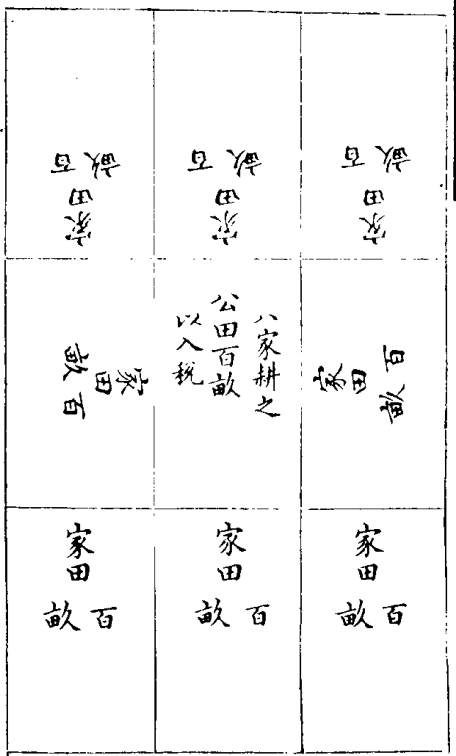 家田
百畝
家田
百畝
家田
百畝
家田
百畝
八家耕之
公田百畝
以入税
家田
百畝
家田
百畝
家田
百畝
家田
百畝